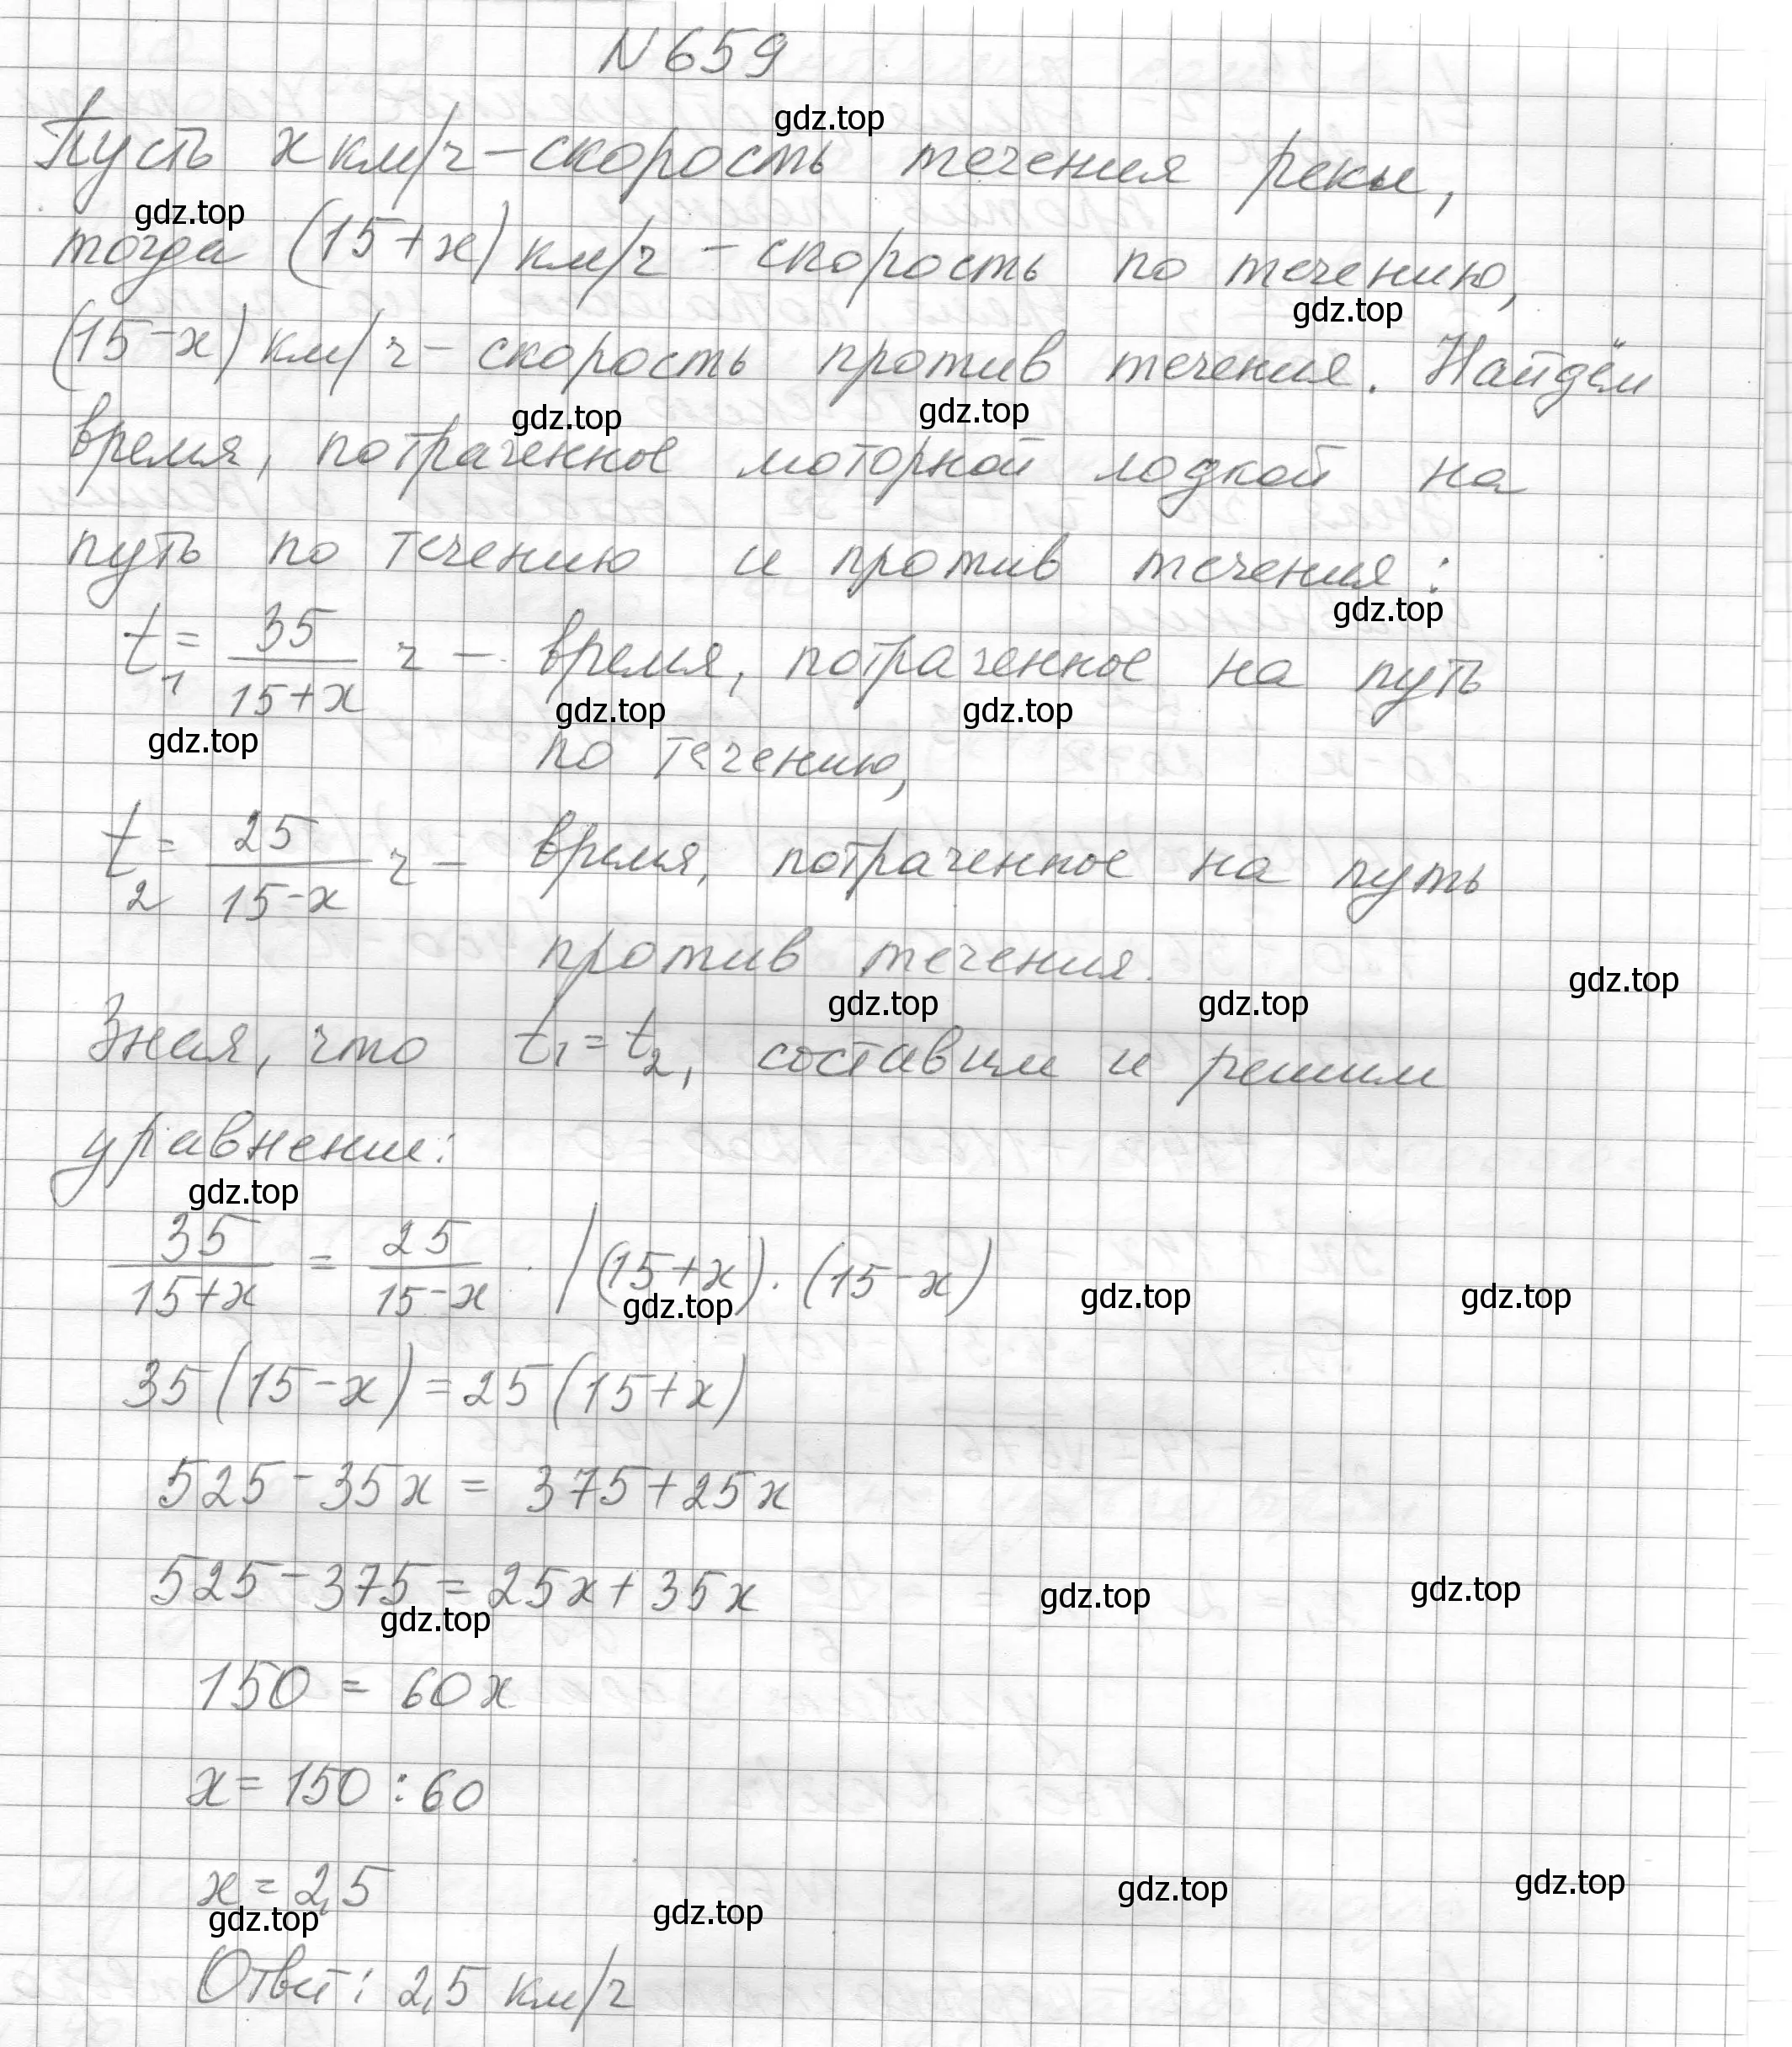 N 659
gdz.top
Пусть x км/ч – скорость течения реки,
gdz.top
тогда (15+x) км/ч – скорость по течению,
gdz.top
(15-x) км/ч – скорость против течения. Найдём
gdz.top gdz.top
время, потраченное моторной лодкой на
путь по течению и против течения:
gdz.top
t₁ = 35/(15+x) ч – время, потраченное на путь
gdz.top gdz.top
gdz.top
по течению,
t₂ = 25/(15-x) ч – время, потраченное на путь
против течения.
gdz.top
gdz.top gdz.top
Зная, что t₁ = t₂, составим и решим
уравнение:
gdz.top
35/(15+x) = 25/(15-x) | (15+x)·(15-x)
gdz.top gdz.top gdz.top
35(15-x) = 25(15+x)
525 - 35x = 375 + 25x
525 - 375 = 25x + 35x
gdz.top gdz.top gdz.top
150 = 60x
x = 150 : 60
x = 2,5
gdz.top gdz.top gdz.top gdz.top
Ответ: 2,5 км/ч